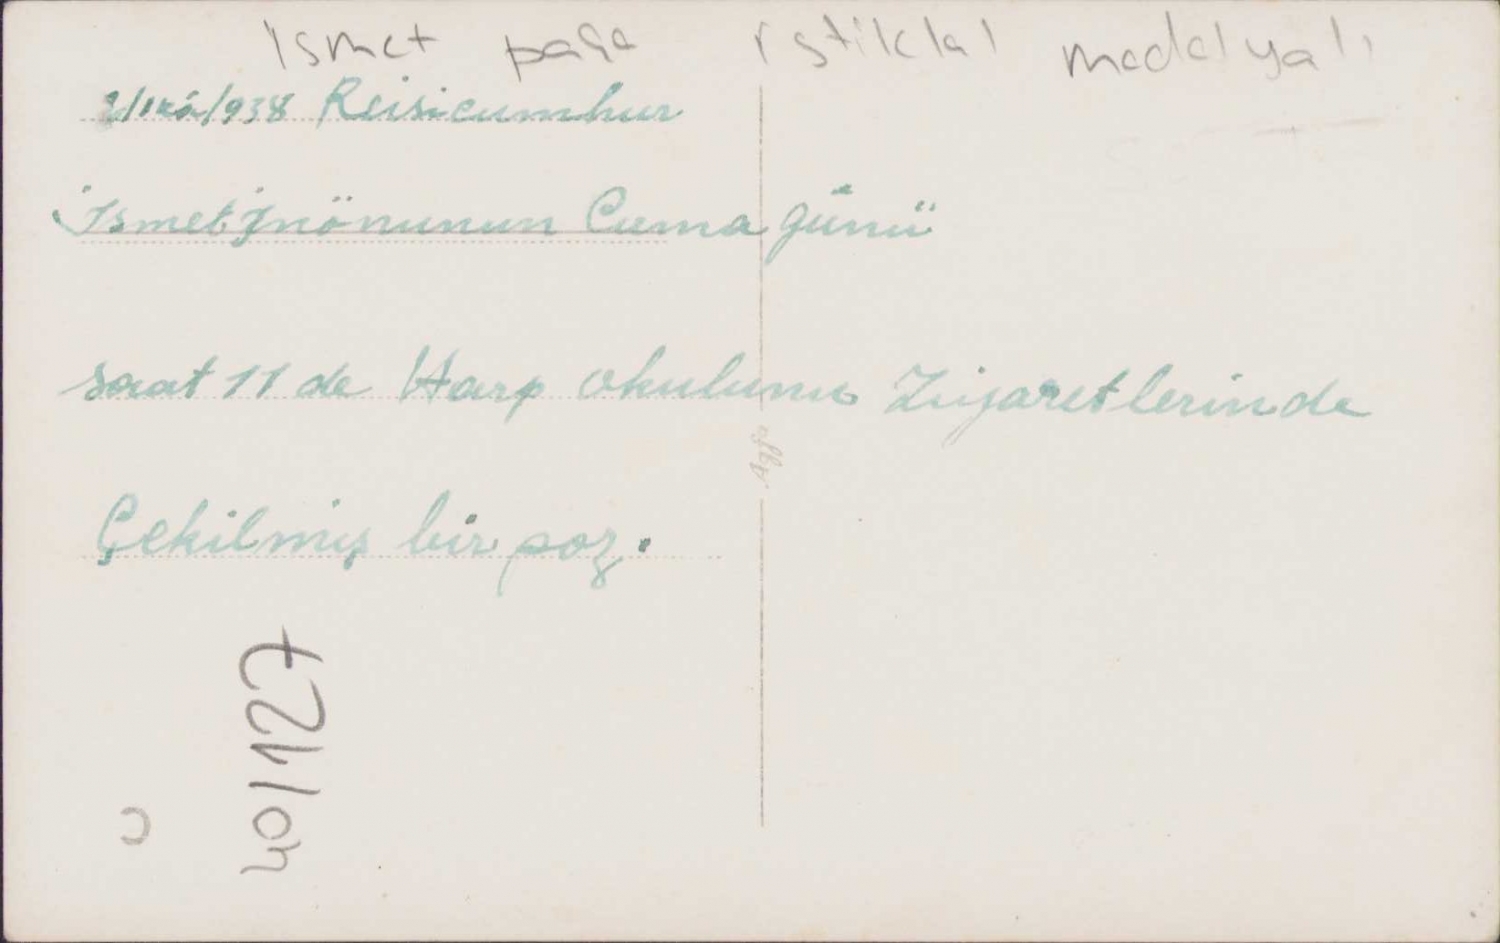 ismet paşa istiklal madalyalı
2/1kâ/938 Reisicumhur
İsmet İnönunun Cuma günü
saat 11 de Harp okulunu Ziyaretlerinde
Çekilmiş bir poz.